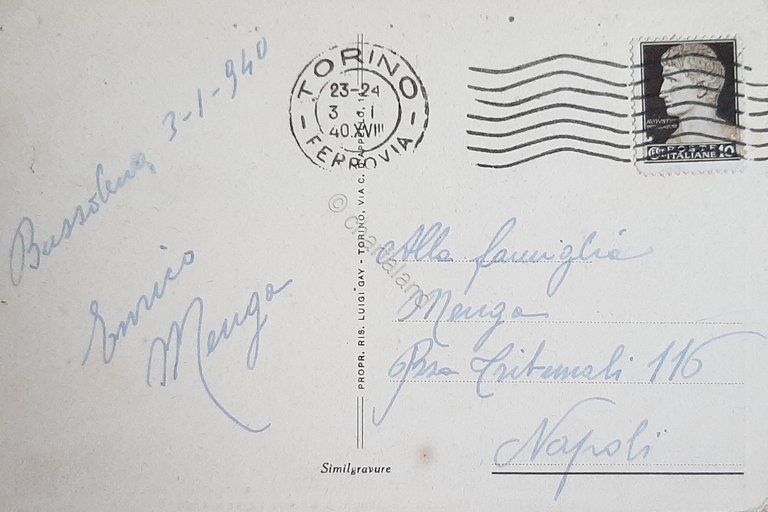 Bussoleno, 3-1-940
Enrico
Menga
TORINO
23-24
3 I
40.XVIII
FERROVIA
POSTE
ITALIANE 10
PROPR. RIS. LUIGI GAY - TORINO, VIA C. D'APPELLO, 1
© Chartaland
Alla famiglia
Menga
116
Napoli
Similgravure